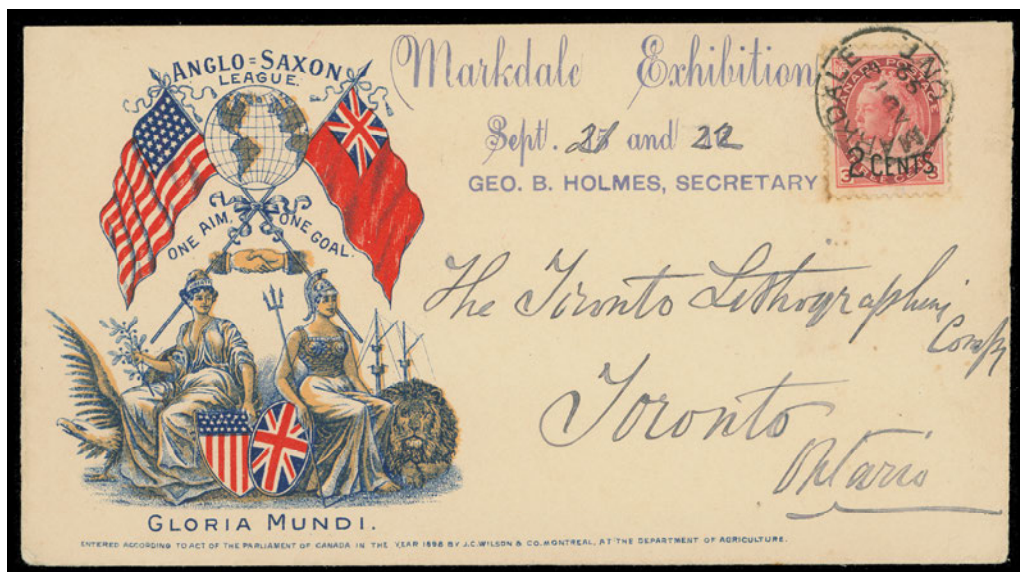 ANGLO=SAXON
LEAGUE.
ONE AIM, ONE GOAL.
GLORIA MUNDI.
ENTERED ACCORDING TO ACT OF THE PARLIAMENT OF CANADA IN THE YEAR 1898 BY J.C.WILSON & CO. MONTREAL, AT THE DEPARTMENT OF AGRICULTURE.
Markdale Exhibition
Sept. and 22
GEO. B. HOLMES, SECRETARY
MARKDALE ONT.
AU 1
99
CANADA POSTAGE
2 CENTS
3
The Toronto Lithographing
Compy
Toronto
Ontario